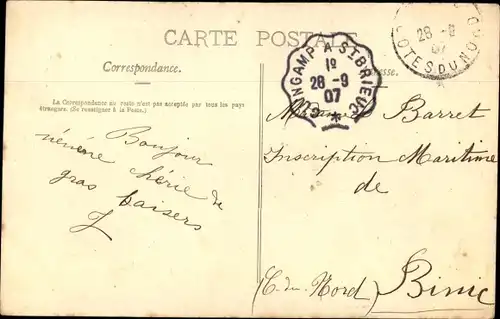 CARTE POSTALE
Correspondance.
La Correspondance au verso n'est pas acceptée par tous les pays
étrangers. (Se renseigner à la Poste.)
Bonjour
nénène chérie de
gros baisers
GUINGAMP A ST BRIEUC
1º
28 - 9
07
28 - 9
07
COTES DU NORD
Barret
Inscription Maritime
de
(C. du Nord) Binic